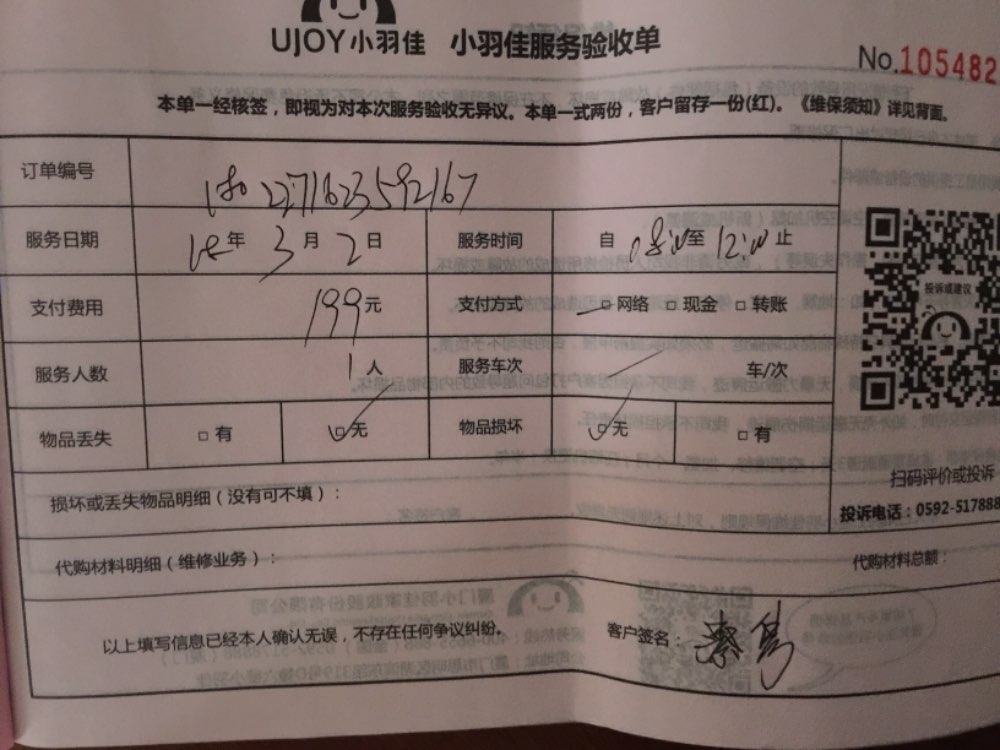 UJOY小羽佳 小羽佳服务验收单
No.105482
本单一经核签，即视为对本次服务验收无异议。本单一式两份，客户留存一份(红)。《维保须知》详见背面。
订单编号 2271623592167
服务日期 18年 3月 2日 服务时间 自 08:00至 12:00止
支付费用 199元 支付方式 □网络 □现金 □转账
服务人数 1人 服务车次 车/次
物品丢失 □有 □无 物品损坏 □无 □有
投诉或建议
扫码评价或投诉
投诉电话：0592-517888
损坏或丢失物品明细（没有可不填）：
代购材料明细（维修业务）： 代购材料总额：
以上填写信息已经本人确认无误，不存在任何争议纠纷。 客户签名：